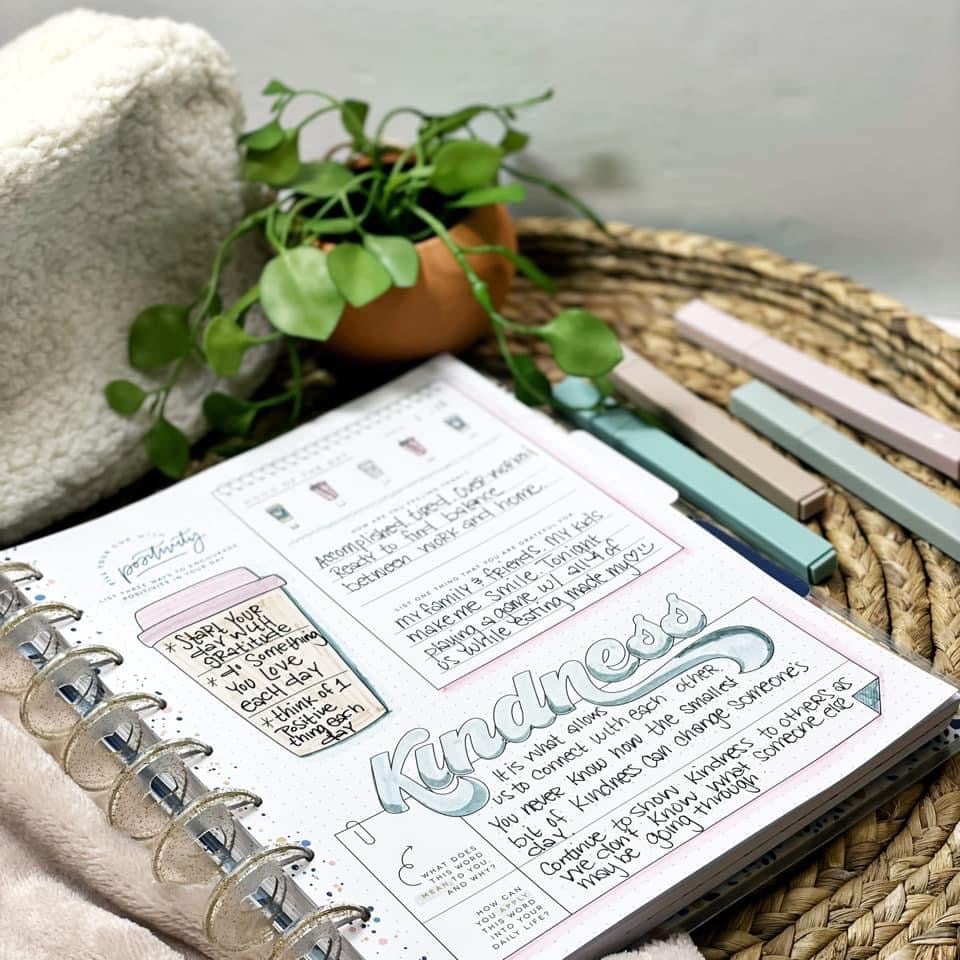 FILL YOUR CUP WITH
positivity
LIST THREE WAYS TO ENCOURAGE
POSITIVITY IN YOUR DAY
* Start your
day with
gratitude
* do something
you love
each day
* think of 1
positive
thing each
day
HOW ARE YOU FEELING TODAY?
Accomplished, tired, over-worked
Ready to find balance
between work and home...
LIST ONE THING THAT YOU ARE GRATEFUL FOR
my family & friends. My kids
make me smile. Tonight
playing a game w/ all 4 of
us while eating made my
Kindness
It is what allows
us to connect with each other.
You never know how the smallest
bit of kindness can change someone's
day
Continue to show kindness to others as
we don't know what someone else
maybe going through
WHAT DOES
THIS WORD
MEAN TO YOU
AND WHY?
HOW CAN
YOU APPLY
THIS WORD
INTO YOUR
DAILY LIFE?